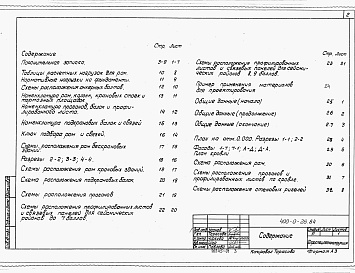 2
Содержание
Стр. Лист
Пояснительная записка. 3-9 1-7
Таблицы расчетных нагрузок для рам. 10 8
Нормативные нагрузки на фундаменты. 11 9
Схемы расположения анкерных болтов 12 10
Номенклатура рам, колонн, крановых стоек и
тормозных площадок 13 11
Номенклатура прогонов, балок и профи-
лированного листа. 14 12
Номенклатура подкрановых балок и связей 15 13
Ключ подбора рам и связей. 16 14
Схемы расположения рам бескрановых
зданий. 17 15
Разрезы 2-2; 3-3; 4-4. 18 16
Схемы расположения рам крановых зданий. 19 17
Схемы расположения подкрановых балок. 20 18
Схемы расположения прогонов 21 19
Схемы расположения профилированных листов
и связевых панелей для сейсмических
районов до 7 баллов. 22 20
Стр. Лист
Схемы расположения профилированных
листов и связевых панелей для сейсми-
ческих районов 8, 9 баллов. 23 21
Пример применения материалов
для проектирования 24
Общие данные (начало) 25 1
Общие данные (продолжение) 26 2
Общие данные (окончание) 27 3
План на отм. 0.000. Разрезы 1-1; 2-2 28 4
План кровли 29 5
Схема расположения рам 30 6
Схемы расположения прогонов и
профилированных листов по кровле. 31 7
Схемы расположения стеновых ригелей 32 8
400-0-26.84
Содержание
Копировал Тарасова
Формат А3